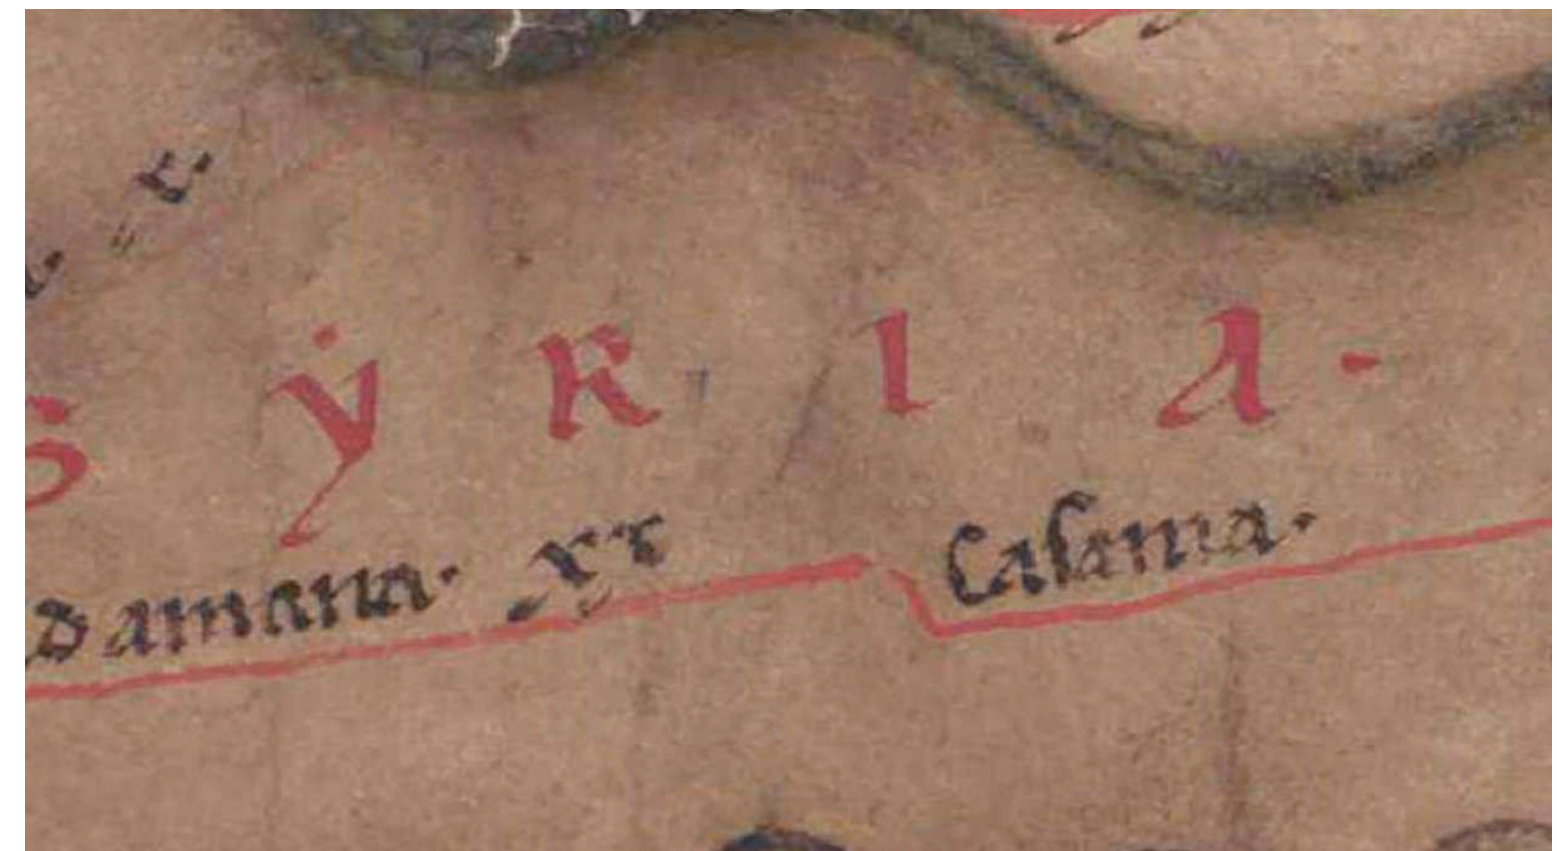 S ẏ R I A.
damana. Casama.